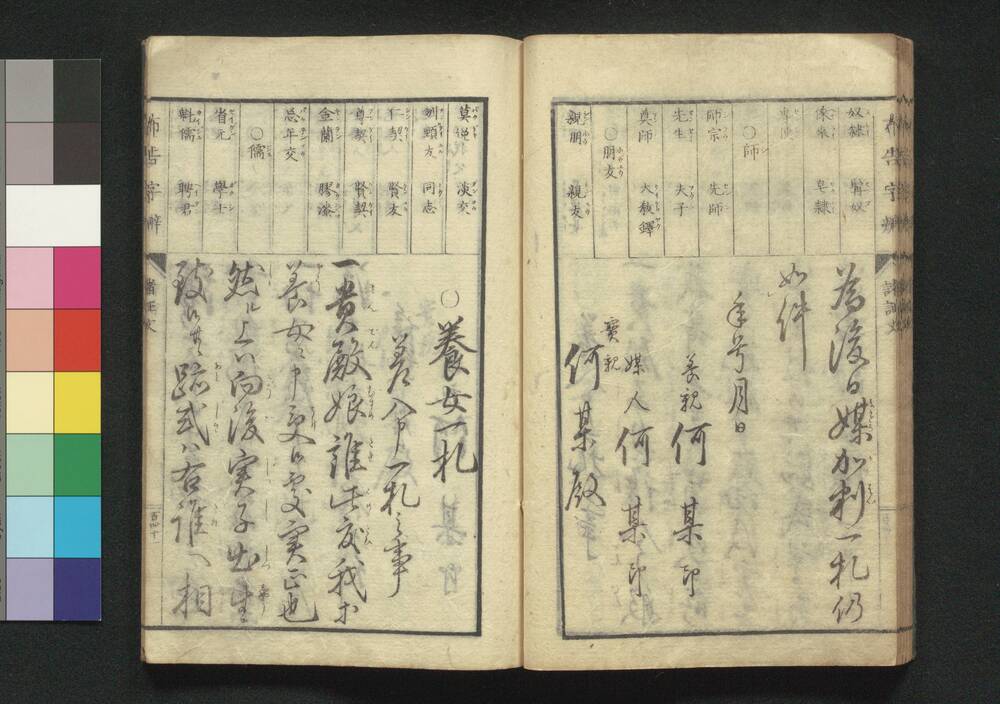 布告字辨
奴隷 臂奴
傔來 皁隷
○師
師宗 先師
先生 夫子
真師 大教鐸
○朋友
親朋 親友
為後日媒加判一札仍
如件
年号月日
養親何 某印
媒人何 某印
實親
何某殿
莫逆 淡交
刎頸友 同志
賢友
尊契 賢契
金蘭 膠漆
忘年交
○儒
省元 學士
魁儒 聘君
布告字辨
諸証文
百四十
○養女一札
差入申一札之事
一貴殿娘誰此度我等
養女ニ申受候処実正也
然ル上ハ向後実子出生
致候共跡式ハ右誰へ相